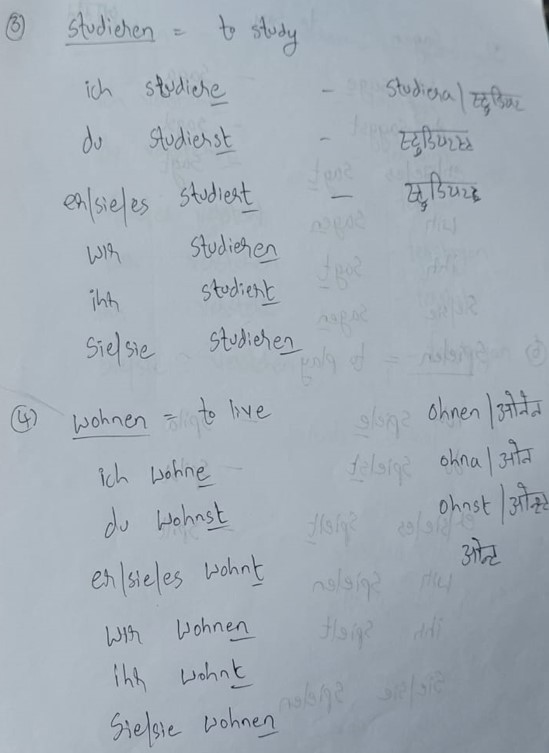 ③ studieren = to study
ich studiere - studiera / स्टुडियर
du studierst - स्टुडियरस्ट
er/sie/es studiert - स्टुडियरट
wir studieren
ihr studiert
Sie/sie studieren
④ wohnen = to live ohnen / ओनेन
ich wohne ohna / ओन
du wohnst ohnst / ओन्स्ट
er/sie/es wohnt ओन्ट
wir wohnen
ihr wohnt
Sie/sie wohnen